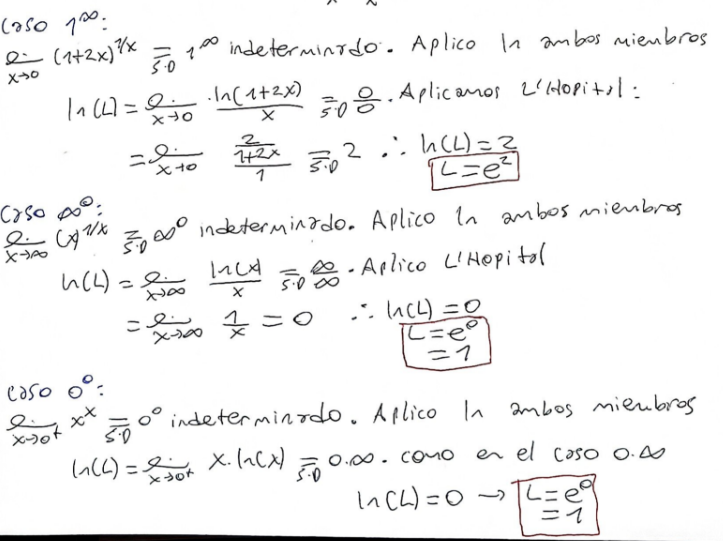 Caso 1^∞:
lim x→0 (1+2x)^1/x = S.D 1^∞ indeterminado. Aplico ln ambos miembros
ln(L) = lim x→0 ln(1+2x)/x = S.D 0/0. Aplicamos L'Hopital:
= lim x→0 (2/(1+2x))/1 = S.D 2 ∴ ln(L)=2
L=e^2
Caso ∞^0:
lim x→∞ (x)^1/x = S.D ∞^0 indeterminado. Aplico ln ambos miembros
ln(L) = lim x→∞ ln(x)/x = S.D ∞/∞. Aplico L'Hopital
= lim x→∞ 1/x = 0 ∴ ln(L)=0
L=e^0
=1
Caso 0^0:
lim x→0+ x^x = S.D 0^0 indeterminado. Aplico ln ambos miembros
ln(L) = lim x→0+ x.ln(x) = S.D 0.∞. como en el caso 0.∞
ln(L)=0 → L=e^0
=1